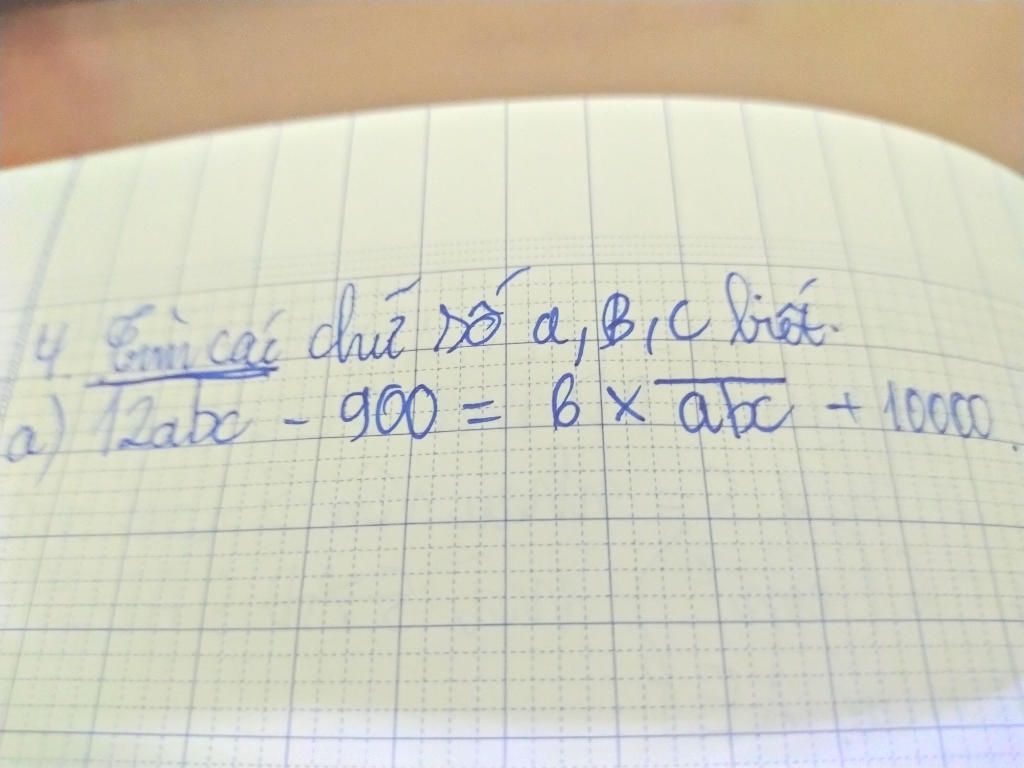 4 Tìm các chữ số a, b, c biết.
a) 12abc - 900 = b × abc + 10000.